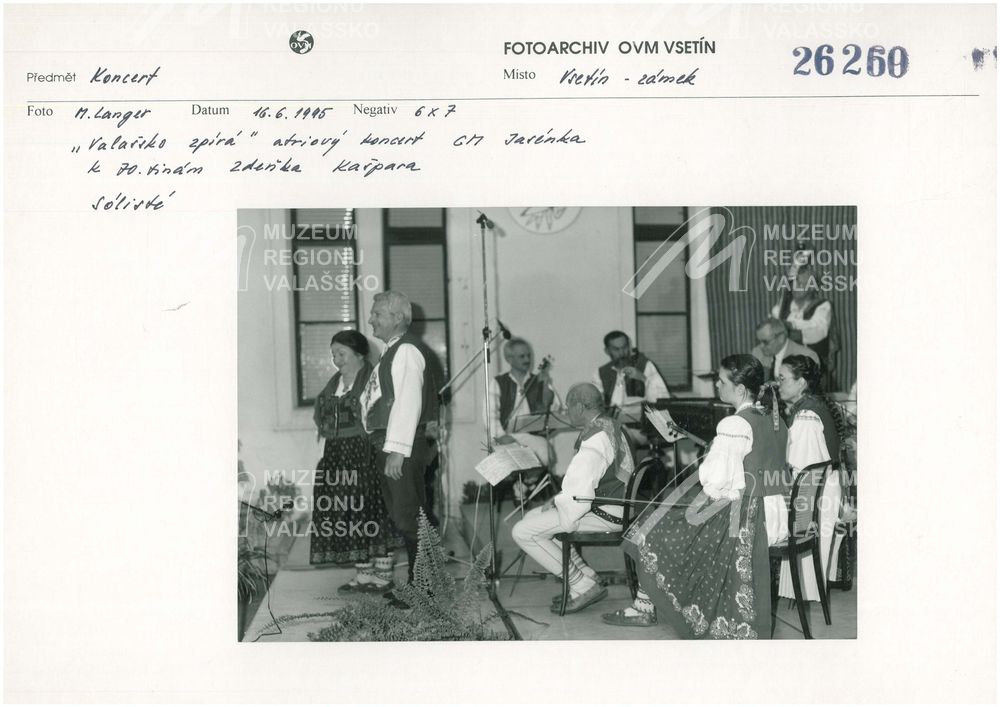 OVM
FOTOARCHIV OVM VSETÍN
26260
Předmět Koncert
Místo Vsetín - zámek
Foto M. Langer Datum 16.6.1995 Negativ 6x7
„Valašsko zpívá" atriový koncert CM Jasénka
k 70.tinám Zdeňka Kašpara
Sólisté
MUZEUM
REGIONU
VALAŠSKO
MUZEUM
REGIONU
VALAŠSKO
MUZEUM
REGIONU
VALAŠSKO
MUZEUM
REGIONU
VALAŠSKO
REGIONU
VALAŠSKO
REGIONU
VALAŠSKO